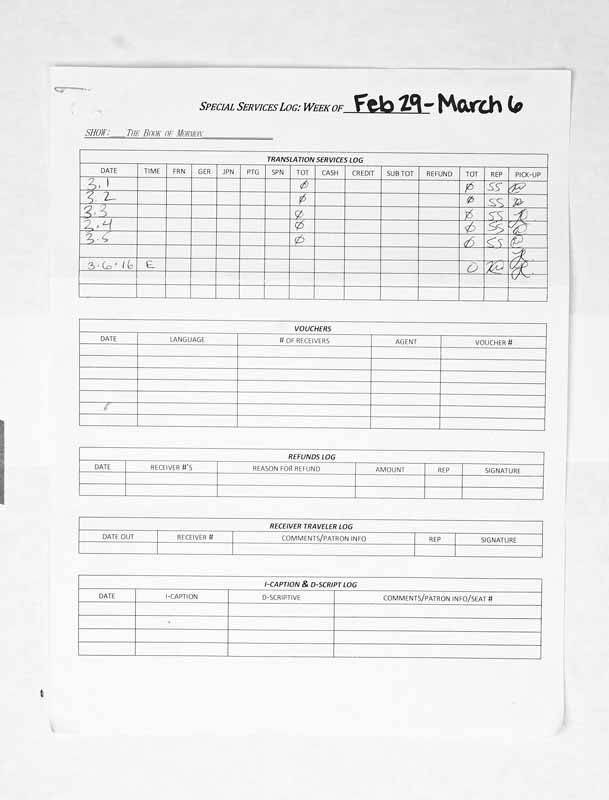 SPECIAL SERVICES LOG: WEEK OF Feb 29 - March 6
SHOW: THE BOOK OF MORMON
TRANSLATION SERVICES LOG
DATE TIME FRN GER JPN PTG SPN TOT CASH CREDIT SUB TOT REFUND TOT REP PICK-UP
3.1 Ø Ø SS
3.2 Ø Ø SS
3.3 Ø Ø SS
3.4 Ø Ø SS
3.5 Ø Ø SS
3.6.16 E 0
VOUCHERS
DATE LANGUAGE # OF RECEIVERS AGENT VOUCHER #
REFUNDS LOG
DATE RECEIVER #'S REASON FOR REFUND AMOUNT REP SIGNATURE
RECEIVER TRAVELER LOG
DATE OUT RECEIVER # COMMENTS/PATRON INFO REP SIGNATURE
I-CAPTION & D-SCRIPT LOG
DATE I-CAPTION D-SCRIPTIVE COMMENTS/PATRON INFO/SEAT #